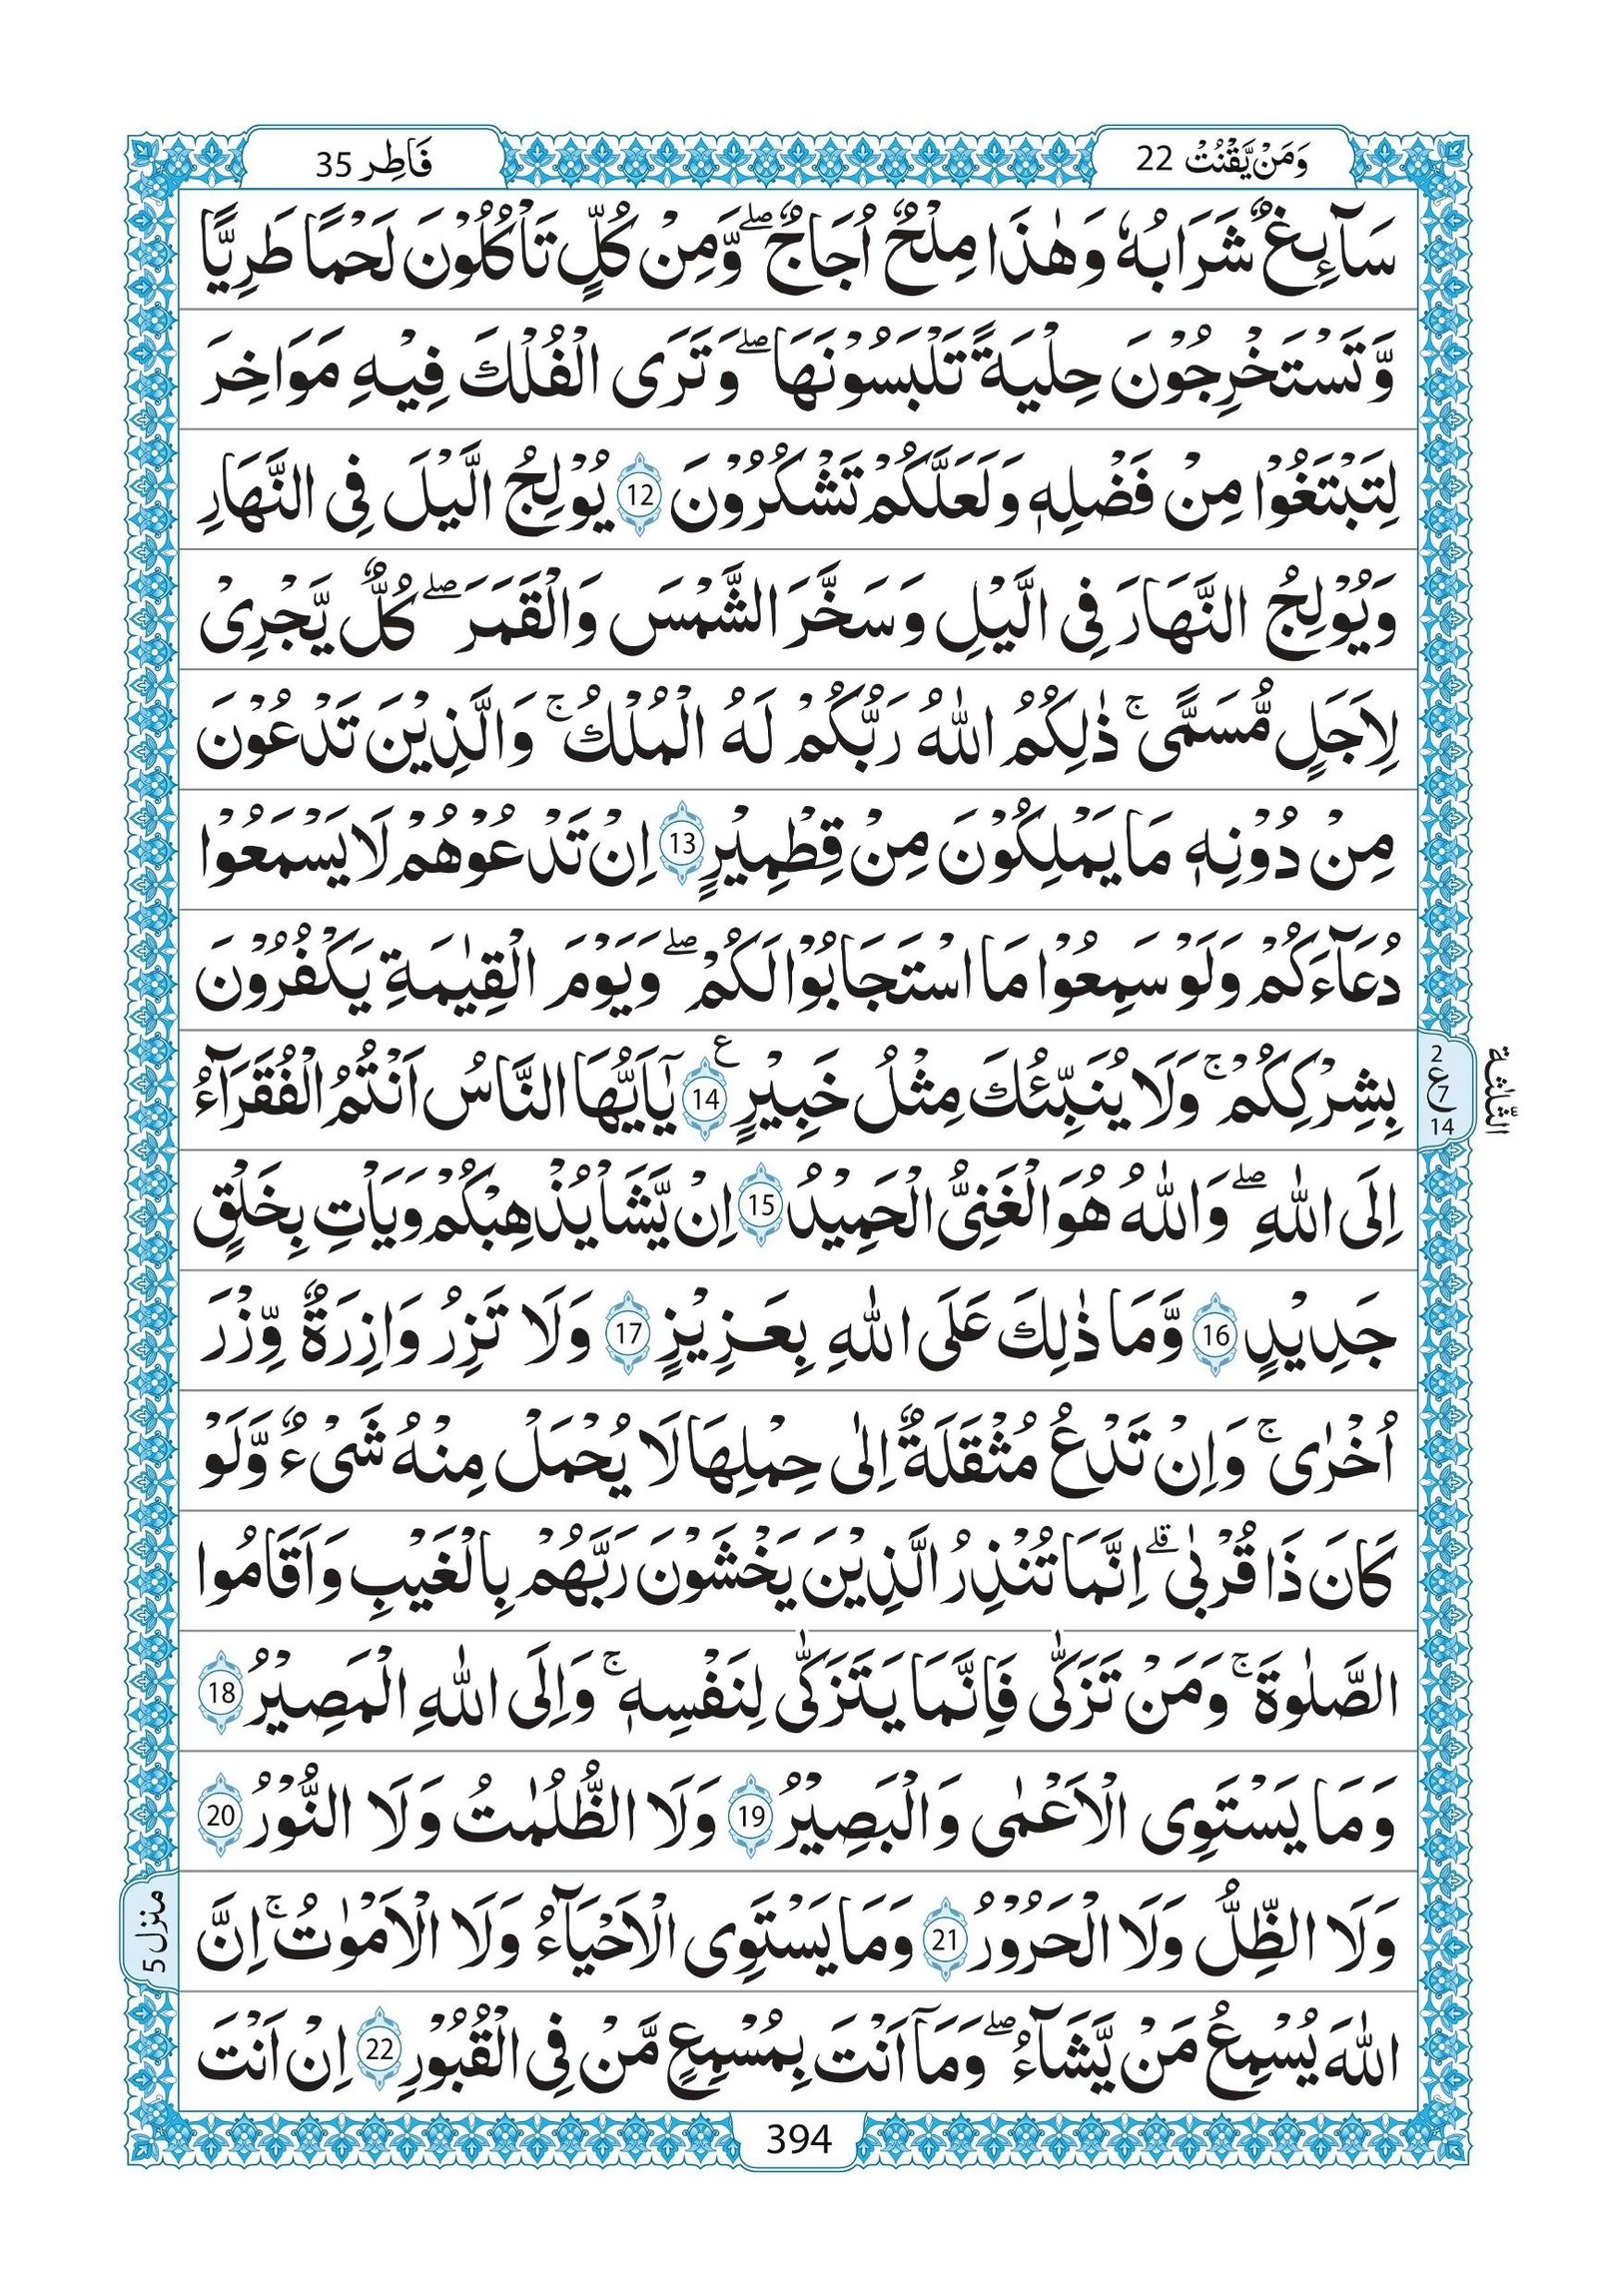 وَمَنْ يَّقْنُتْ 22
فَاطِر 35
سَآىِٕغٌ شَرَابُهٗ وَهٰذَا مِلْحٌ اُجَاجٌ ۖ وَّمِنْ كُلٍّ تَاْكُلُوْنَ لَحْمًا طَرِيًّا
وَّتَسْتَخْرِجُوْنَ حِلْيَةً تَلْبَسُوْنَهَا ۖ وَتَرَى الْفُلْكَ فِيْهِ مَوَاخِرَ
لِتَبْتَغُوْا مِنْ فَضْلِهٖ وَلَعَلَّكُمْ تَشْكُرُوْنَ 12 يُوْلِجُ الَّيْلَ فِى النَّهَارِ
وَيُوْلِجُ النَّهَارَ فِى الَّيْلِ وَسَخَّرَ الشَّمْسَ وَالْقَمَرَ ۖ كُلٌّ يَّجْرِىْ
لِاَجَلٍ مُّسَمًّى ۚ ذٰلِكُمُ اللّٰهُ رَبُّكُمْ لَهُ الْمُلْكُ ۚ وَالَّذِيْنَ تَدْعُوْنَ
مِنْ دُوْنِهٖ مَا يَمْلِكُوْنَ مِنْ قِطْمِيْرٍ 13 اِنْ تَدْعُوْهُمْ لَا يَسْمَعُوْا
دُعَآءَكُمْ وَلَوْ سَمِعُوْا مَا اسْتَجَابُوْا لَكُمْ ۖ وَيَوْمَ الْقِيٰمَةِ يَكْفُرُوْنَ
بِشِرْكِكُمْ ۚ وَلَا يُنَبِّئُكَ مِثْلُ خَبِيْرٍ ع 14 يٰٓاَيُّهَا النَّاسُ اَنْتُمُ الْفُقَرَآءُ
2
ع 7
14
الثّلٰثة
اِلَى اللّٰهِ ۖ وَاللّٰهُ هُوَ الْغَنِىُّ الْحَمِيْدُ 15 اِنْ يَّشَاْ يُذْهِبْكُمْ وَيَاْتِ بِخَلْقٍ
جَدِيْدٍ 16 وَّمَا ذٰلِكَ عَلَى اللّٰهِ بِعَزِيْزٍ 17 وَلَا تَزِرُ وَازِرَةٌ وِّزْرَ
اُخْرٰى ۚ وَاِنْ تَدْعُ مُثْقَلَةٌ اِلٰى حِمْلِهَا لَا يُحْمَلْ مِنْهُ شَىْءٌ وَّلَوْ
كَانَ ذَا قُرْبٰى ۗ اِنَّمَا تُنْذِرُ الَّذِيْنَ يَخْشَوْنَ رَبَّهُمْ بِالْغَيْبِ وَاَقَامُوا
الصَّلٰوةَ ۚ وَمَنْ تَزَكّٰى فَاِنَّمَا يَتَزَكّٰى لِنَفْسِهٖ ۚ وَاِلَى اللّٰهِ الْمَصِيْرُ 18
وَمَا يَسْتَوِى الْاَعْمٰى وَالْبَصِيْرُ 19 وَلَا الظُّلُمٰتُ وَلَا النُّوْرُ 20
وَلَا الظِّلُّ وَلَا الْحَرُوْرُ 21 وَمَا يَسْتَوِى الْاَحْيَآءُ وَلَا الْاَمْوٰتُ ۚ اِنَّ
منزل 5
اللّٰهَ يُسْمِعُ مَنْ يَّشَآءُ ۖ وَمَآ اَنْتَ بِمُسْمِعٍ مَّنْ فِى الْقُبُوْرِ 22 اِنْ اَنْتَ
394